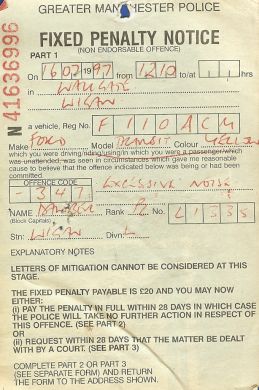 GREATER MANCHESTER POLICE
FIXED PENALTY NOTICE
(NON ENDORSABLE OFFENCE)
PART 1
N 41636996
On 16 07 1997 from 1210 to/at hrs
in WALLGATE
WIGAN
a vehicle, Reg No. F110ACM
Make FORD Model TRANSIT Colour YELLOW
which you were driving/riding/using/in which you were a passenger/which
was unattended, was seen in circumstances which gave me reasonable
cause to believe that the offence indicated below was being or had been
committed
OFFENCE CODE
347 EXCESSIVE NOISE
NAME Rank P No. L1335
(Block Capitals)
Stn: WIGAN Divn: L
EXPLANATORY NOTES
LETTERS OF MITIGATION CANNOT BE CONSIDERED AT THIS
STAGE.
THE FIXED PENALTY PAYABLE IS £20 AND YOU MAY NOW
EITHER:
(i) PAY THE PENALTY IN FULL WITHIN 28 DAYS IN WHICH CASE
THE POLICE WILL TAKE NO FURTHER ACTION IN RESPECT OF
THIS OFFENCE. (SEE PART 2)
OR
(ii) REQUEST WITHIN 28 DAYS THAT THE MATTER BE DEALT
WITH BY A COURT. (SEE PART 3)
COMPLETE PART 2 OR PART 3
(SEE SEPARATE FORM) AND RETURN
THE FORM TO THE ADDRESS SHOWN.